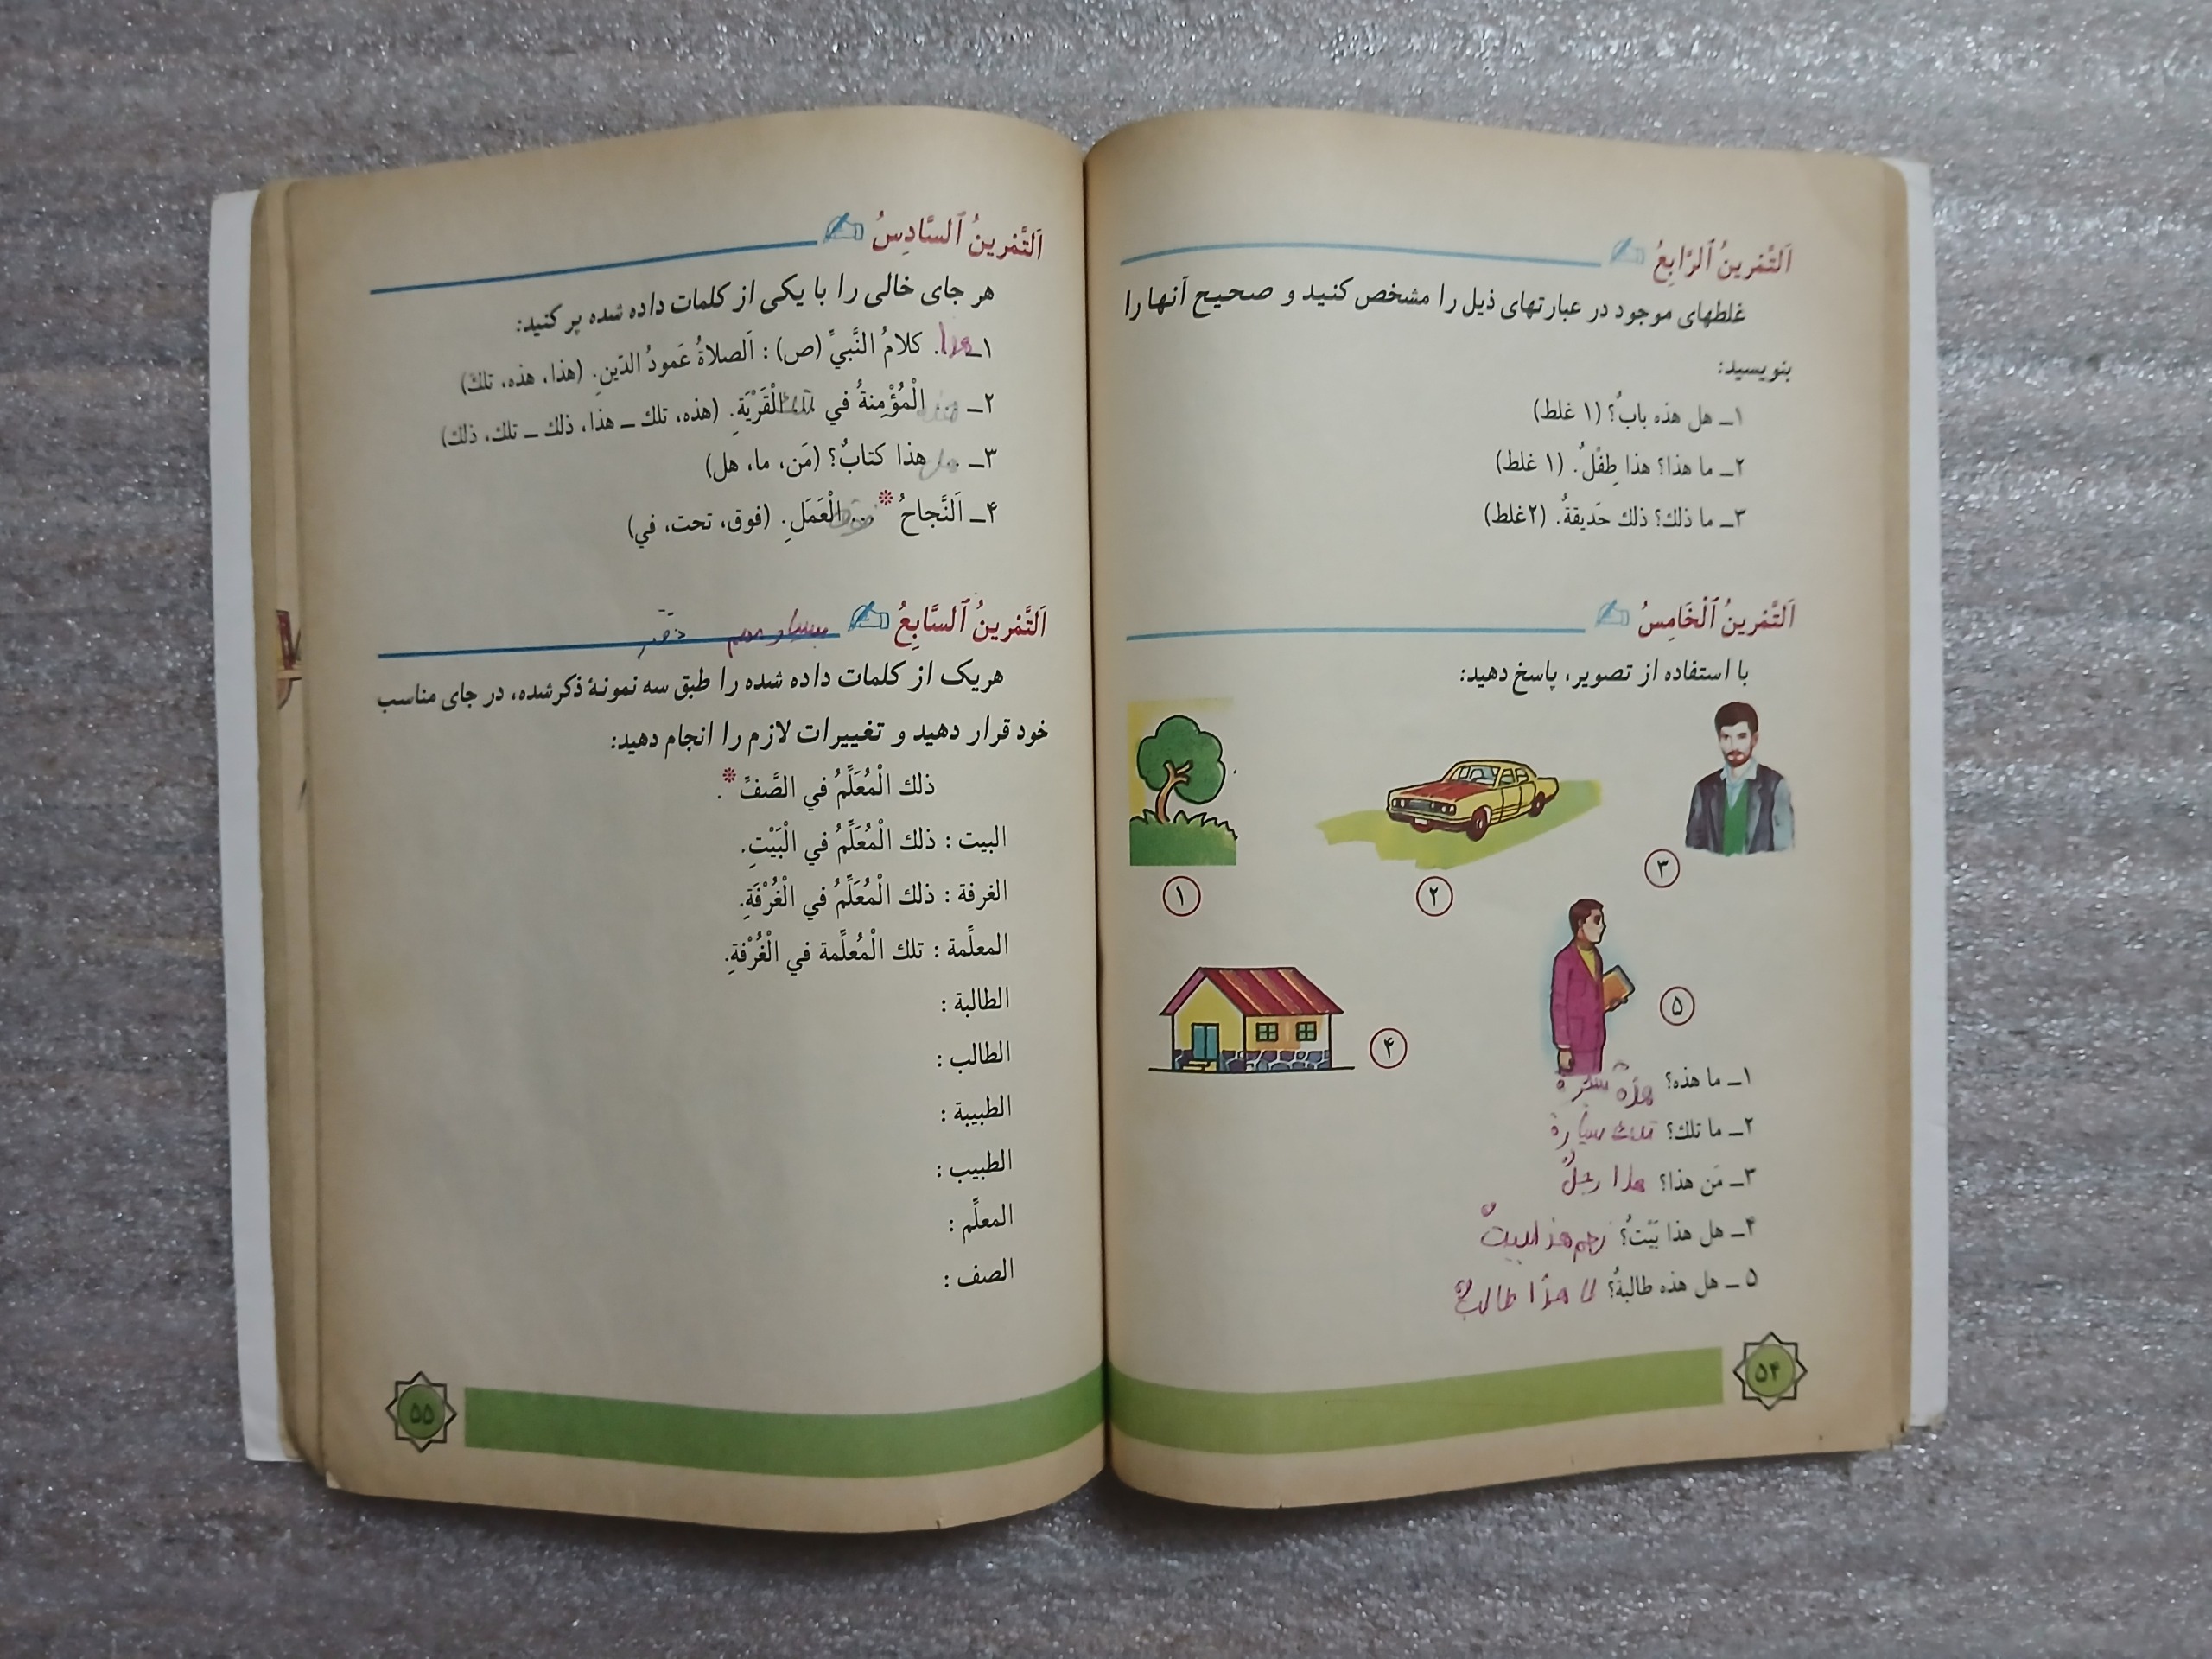 اَلتَّمْرينُ ٱلرّابِعُ
غلطهای موجود در عبارتهای ذیل را مشخص کنید و صحیح آنها را
بنویسید:
۱ــ هل هذه بابٌ؟ (۱ غلط)
۲ــ ما هذا؟ هذا طِفْلٌ. (۱ غلط)
۳ــ ما ذلك؟ ذلك حَديقةٌ. (۲غلط)
اَلتَّمْرينُ ٱلْخَامِسُ
با استفاده از تصویر، پاسخ دهید:
۳
۱
۲
۵
۴
۱ــ ما هذه؟ هذه شجرة
۲ــ ما تلك؟ تلك سيارة
۳ــ مَن هذا؟ هذا رجلٌ
۴ــ هل هذا بَيْتٌ؟ هذا بيتٌ
۵ ــ هل هذه طالبةٌ؟ لا هذا طالبٌ
۵۴
اَلتَّمْرينُ ٱلسَّادِسُ
هر جای خالی را با یکی از کلمات داده شده پر کنید:
۱ــ هذا. كلامُ النَّبيِّ (ص) : اَلصلاةُ عَمودُ الدّينِ. (هذا، هذه، تلك)
۲ــ هذه الْمُؤْمِنةُ في تلك الْقَرْيَةِ. (هذه، تلك ــ هذا، ذلك ــ تلك، ذلك)
۳ــ هل هذا كتابٌ؟ (مَن، ما، هل)
۴ــ اَلنَّجاحُ * ... الْعَمَلِ. (فوق، تحت، في)
اَلتَّمْرينُ ٱلسَّابِعُ
هریک از کلمات داده شده را طبق سه نمونهٔ ذکرشده، در جای مناسب
خود قرار دهید و تغییرات لازم را انجام دهید:
ذلك الْمُعَلِّمُ في الصَّفِّ * .
البيت : ذلك الْمُعَلِّمُ في الْبَيْتِ.
الغرفة : ذلك الْمُعَلِّمُ في الْغُرْفَةِ.
المعلِّمة : تلك الْمُعَلِّمة في الْغُرْفةِ.
الطالبة :
الطالب :
الطبيبة :
الطبيب :
المعلِّم :
الصف :
۵۵